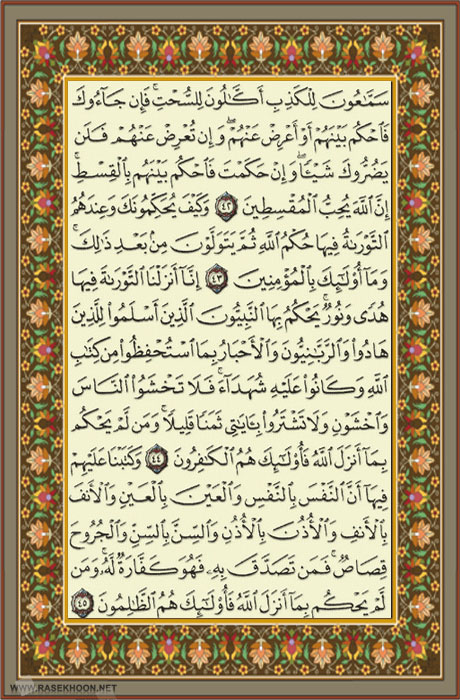 سَمَّٰعُونَ لِلْكَذِبِ أَكَّٰلُونَ لِلسُّحْتِ ۚ فَإِن جَآءُوكَ
فَٱحْكُم بَيْنَهُمْ أَوْ أَعْرِضْ عَنْهُمْ ۖ وَإِن تُعْرِضْ عَنْهُمْ فَلَن
يَضُرُّوكَ شَيْـًٔا ۖ وَإِنْ حَكَمْتَ فَٱحْكُم بَيْنَهُم بِٱلْقِسْطِ ۚ
إِنَّ ٱللَّهَ يُحِبُّ ٱلْمُقْسِطِينَ ٤٢ وَكَيْفَ يُحَكِّمُونَكَ وَعِندَهُمُ
ٱلتَّوْرَىٰةُ فِيهَا حُكْمُ ٱللَّهِ ثُمَّ يَتَوَلَّوْنَ مِنۢ بَعْدِ ذَٰلِكَ ۚ
وَمَآ أُو۟لَٰٓئِكَ بِٱلْمُؤْمِنِينَ ٤٣ إِنَّآ أَنزَلْنَا ٱلتَّوْرَىٰةَ فِيهَا
هُدًى وَنُورٌ ۚ يَحْكُمُ بِهَا ٱلنَّبِيُّونَ ٱلَّذِينَ أَسْلَمُوا۟ لِلَّذِينَ
هَادُوا۟ وَٱلرَّبَّٰنِيُّونَ وَٱلْأَحْبَارُ بِمَا ٱسْتُحْفِظُوا۟ مِن كِتَٰبِ
ٱللَّهِ وَكَانُوا۟ عَلَيْهِ شُهَدَآءَ ۚ فَلَا تَخْشَوُا۟ ٱلنَّاسَ
وَٱخْشَوْنِ وَلَا تَشْتَرُوا۟ بِـَٔايَٰتِى ثَمَنًا قَلِيلًا ۚ وَمَن لَّمْ يَحْكُم
بِمَآ أَنزَلَ ٱللَّهُ فَأُو۟لَٰٓئِكَ هُمُ ٱلْكَٰفِرُونَ ٤٤ وَكَتَبْنَا عَلَيْهِمْ
فِيهَآ أَنَّ ٱلنَّفْسَ بِٱلنَّفْسِ وَٱلْعَيْنَ بِٱلْعَيْنِ وَٱلْأَنفَ
بِٱلْأَنفِ وَٱلْأُذُنَ بِٱلْأُذُنِ وَٱلسِّنَّ بِٱلسِّنِّ وَٱلْجُرُوحَ
قِصَاصٌ ۚ فَمَن تَصَدَّقَ بِهِۦ فَهُوَ كَفَّارَةٌ لَّهُۥ ۚ وَمَن
لَّمْ يَحْكُم بِمَآ أَنزَلَ ٱللَّهُ فَأُو۟لَٰٓئِكَ هُمُ ٱلظَّٰلِمُونَ ٤٥
WWW.RASEKHOON.NET